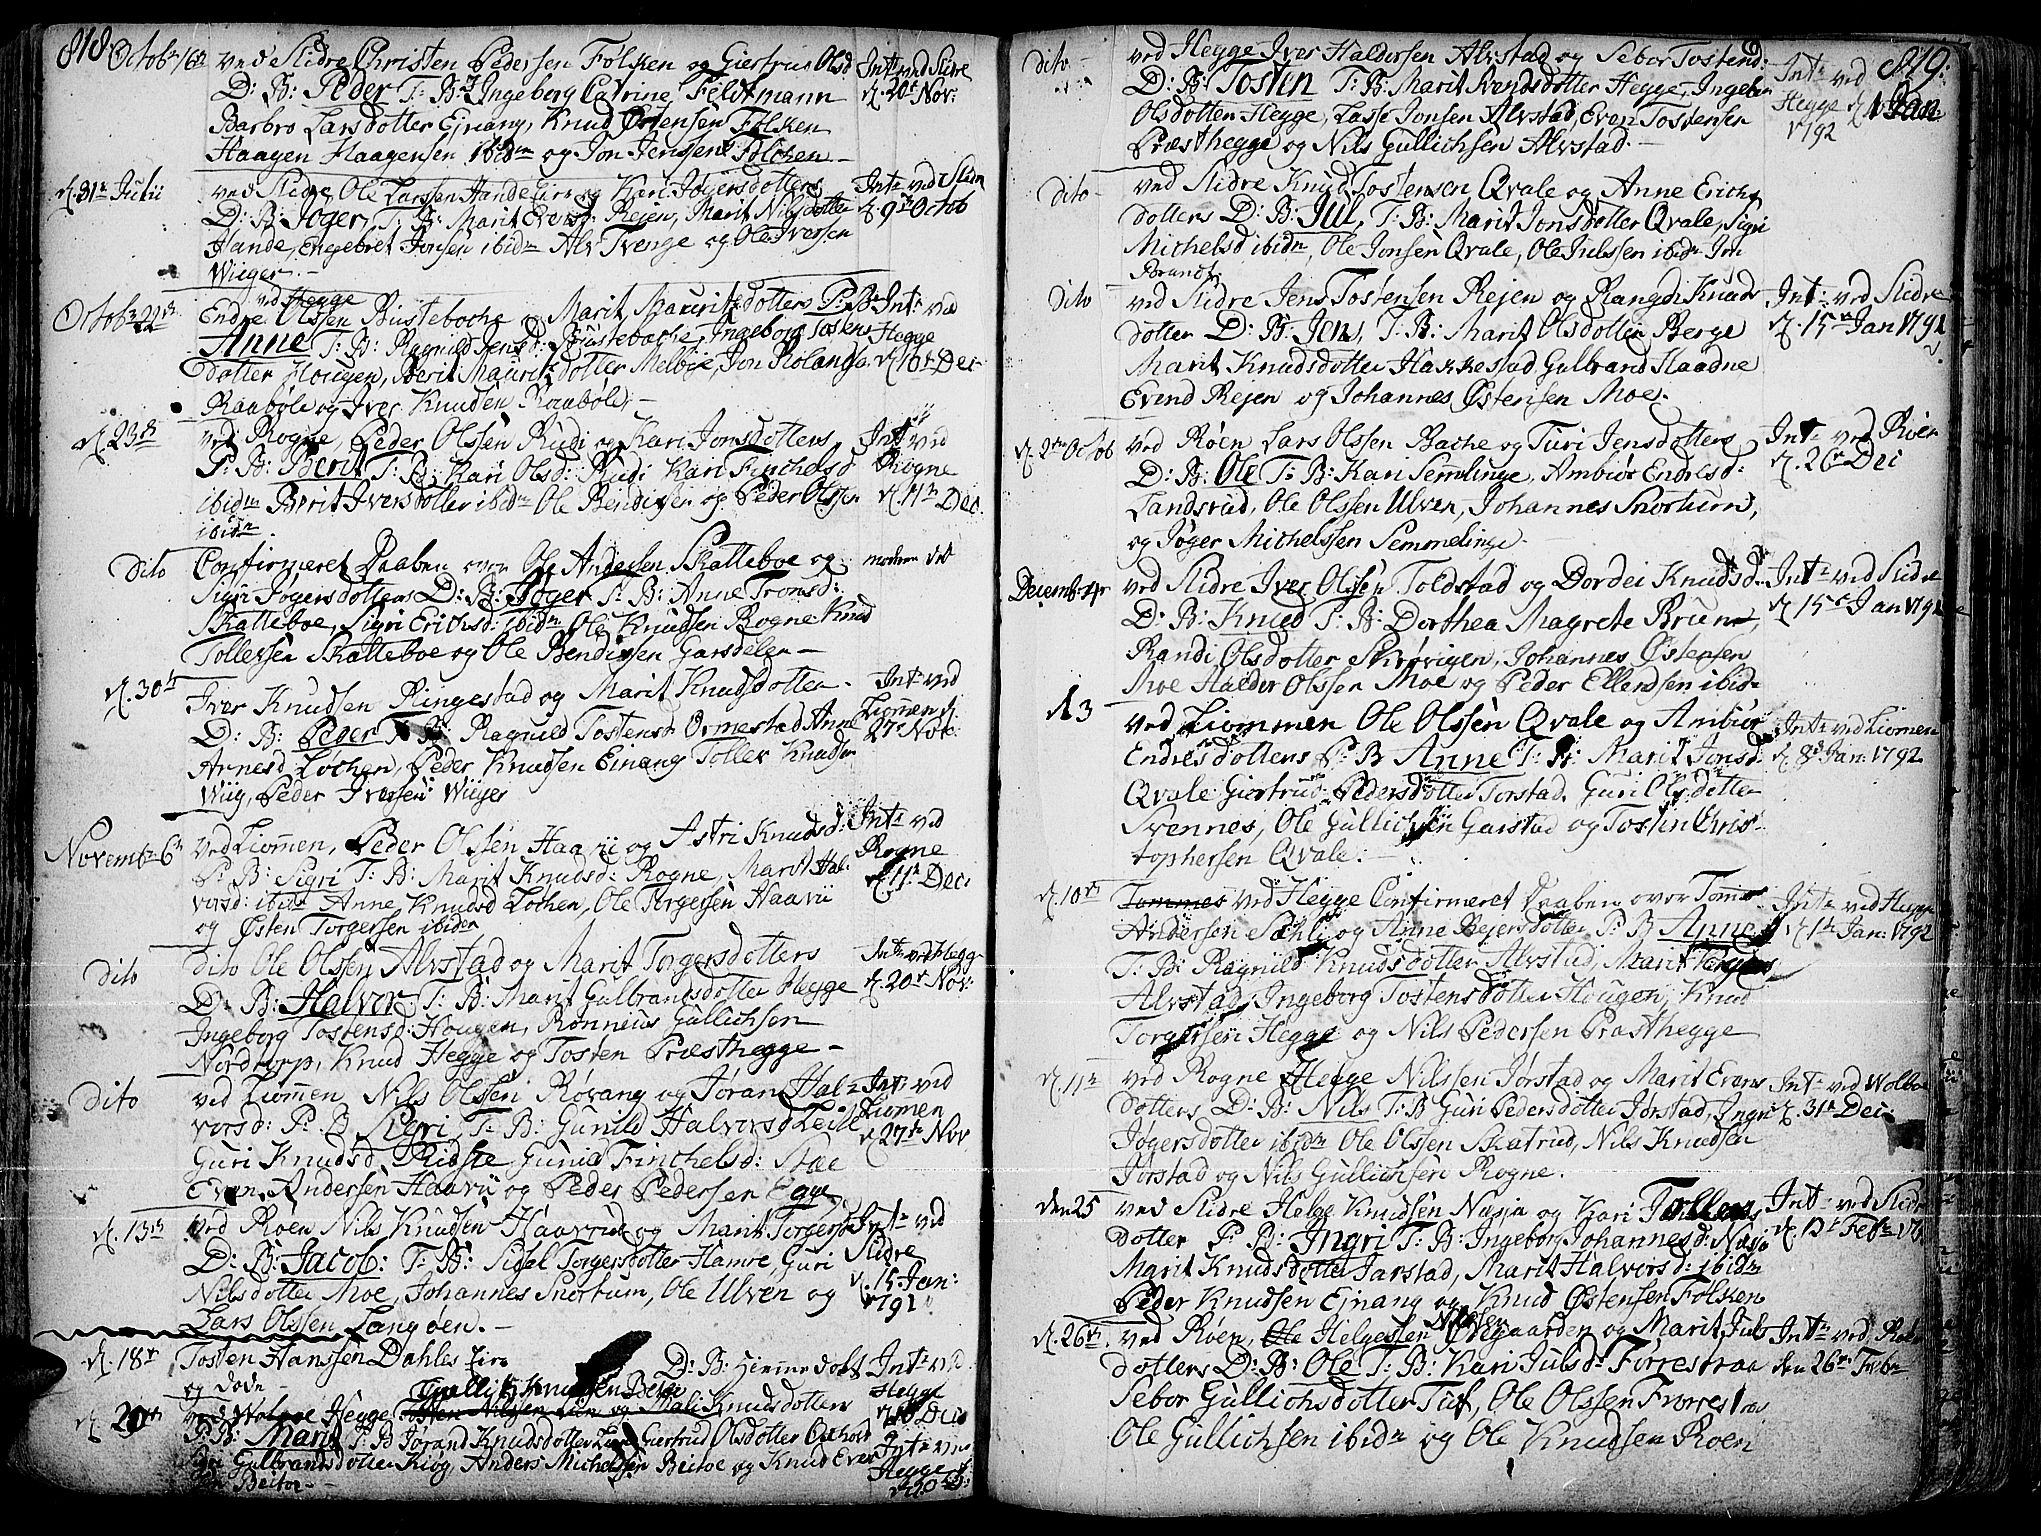 818
Octobr 16de ved Slidre Christen Pedersen Følken og Giertrud Olsd
D: B: Peder T: B: Ingeborg Catrine Feldtmann
Barbro Larsdotter Ejnang, Knud Østensen Følken
Haagen Haagensen ibidm og Jon Jenssen Følchen
Int: ved Slidre
d. 20de Nov:
d. 31te Julii ved Slidre Ole Larssen Hande og Kari Jøgersdotters
D: B: Jøger, T: B: Marit Evensd: Rejen, Marit Nilsdotter
Hande, Engebret Jonsen ibidm Alv Tvenge og Ole Iversen
Wiger
Int: ved Slidre
d. 9de Octob
Octobr 22de ved Hegge
Endre Olssen Bustebache og Marit Mauritsdotters P: B:
Anne T: B: Ragnild Jensd: Bustebache, Ingeborg Tostens
dotter Hougen, Berit Mauritsdotter Melbye, Jon Rolands
Raabøle og Iver Knudsen Raabøle
Int: ved
Hegge
d. 16de Dec
d. 23de ved Rogne, Peder Olssen Rudi og Kari Jonsdotters
P: B: Berit T: B: Kari Olsd: Rudi Kari Finchelsd
ibidm Berit Iversdotter ibidm Ole Bendixen og Peder Olssen
ibidm.
Int: ved
Rogne
d. 11te Dec.
Dito Confirmeret Daaben over Ole Andersen Skatteboe og
Sigri Jøgersdotters D: B: Jøger T: B: Anne Tronsd:
Skatteboe, Sigri Erichsd: ibidm Ole Knudsen Rogne Knud
Tollefsen Skatteboe og Ole Bendixen Garsdelen
d. 30te Iver Knudsen Ringestad og Marit Knudsdotter
D: B: Peder T: B: Ragnild Tostensd Ormestad Anne
Arnesd Lochen, Peder Knudsen Einang Tollef Knudsen
Wiig, Peder Iversen Wiiges
Int: ved
Liomen d.
27de Nov:
Novembr 6te ved Liomen, Peder Olssen Haavii og Astri Knudsd:
P: B: Sigri T: B: Marit Knudsd: Rogne, Marit Hal
vorsd: ibidm Anne Knudsd Lochen, Ole Torgersen Haavii
og Østen Torgersen ibidm
Int: ved
Rogne
d. 11te Dec:
Dito dito Ole Olssen Alvstad og Marit Torgersdotters
D: B: Halvor T: B: Marit Gulbrandsdotter Hegge
Ingeborg Tostensd: Hougen, Ronneus Gullichsen
Nordtorp, Knud Hegge og Tosten Præsthegge
Int: ved Hegge
d. 20de Nov:
Dito ved Liomen, Nils Olssen Røvang og Jøran Hal
vorsd: P: B Sigri T: B: Gunild Halvorsd Leite
Guri Knudsd Ridste, Gunild Finchelsd: Stee
Even Andersen Haavii og Peder Pedersen Egge
Int: ved
Liomen
d. 27de Nov
d. 13de ved Røen Nils Knudsen Haavrud og Marit Torgersd
D: B: Jacob: T: B: Sidsel Torgersdotter Hamre, Guri
Nilsdotter Moe, Johannes Snortum, Ole Ulven og
Lars Olssen Langøen.
Int: ved
Slidre
d. 15 Jan:
1791
d. 18de Tosten Hanssen Dahles D: B: hiemme døbt
og døde
Int: ved
Hegge
d. 20de ved Hegge Gullik Knudsen Beitoe og Mali Knudsdotters
P: B: Marit T: B Jørand Knudsdotter Giertrud Olsdotter
Gulbrandsdotter Kiøg, Anders Michelsen Beitoe og Knud Evens
Beitoe
Int: ved
Hegge
819.
dito ved Hegge Iver Haldorsen Alvstad og Sebor Tostend:
D: B: Tosten T: B: Marit Svendsdotter Hegge, Ingebor
Olsdotter Hegge, Lasse Jonsen Alvstad, Even Tostensen
Præsthegge og Nils Gullichsen Alvstad.
Int: ved
Hegge d. 1 Jan
1792
dito ved Slidre Knud Tostensen Qvale og Anne Erichs
dotters D: B: Jul, T: B: Marit Jonsdotter Qvale, Sigri
Michelsd ibidm, Ole Jonsen Qvale, Ole Julssen ibidm Jon
Brandt
dito ved Slidre Jens Tostensen Rejen og Rangdi Knuds
dotter D: B: Jens, T: B: Marit Olsdotter Berge
Marit Knudsdotter Hakkestad Gulbrand Haadne
Evend Rejen og Johannes Østensen Moe.
Int: ved Slidre
d. 15de Jan 1792
d. 2den Octob ved Røen Lars Olssen Bache og Turi Jensdotters
D: B: Ole T: B: Kari Semmlinge, Ambiør Endresd:
Landsrud, Ole Olssen Ulven, Johannes Snortum,
og Jøger Michelssen Semmelinge
Int: ved Røen
d. 26de Dec
Decembr 4de ved Slidre Iver Olssen Toldstad og Dordei Knudsd
D: B: Knud T: B: Dorthea Magrete Bruun,
Randi Olsdotter Skrøvigen, Johannes Østensen
Moe Haldor Olssen Moe og Peder Ellendsen ibid
Int: ved Slidre
d. 15de Jan 1792
d. 3 ved Liommen Ole Olssen Qvale og Ambiør
Endresdotters P: B Anne T: B: Marit Jonsd:
Qvale Giertrud Pedersdotter Torstad, Guri Olsdotter
Svennes, Ole Gullichsen Garstad og Tosten Chris
tophersen Qvale:
Int: ved Liomen
d. 8de Jan: 1792
d. 10de Tommes ved Hegge Confirmeret Daaben over Tomes
Andersen Sæhli og Anne Bejersdotter P: B Anne
T: B: Ragnild Knudsdotter Alvstad, Marit Torgers
Alvstad, Ingeborg Tostensdotter Hougen, Knud
Torgersen Hegge og Nils Pedersen Præsthegge
Int: ved Hegge
d. 1te Jan: 1792
d. 11te ved Rogne Hegge Nilssen Jørstad og Marit Evens
dotters D: B: Nils T: B Guri Pedersdotter Jørstad, Ingri
Jøgersdotter ibidm Ole Olssen Skatrud, Nils Knudsen
Jørstad og Nils Gullichsen Rogne.
Int: ved Wolboe
d. 31te Dec:
den 25 ved Slidre Helge Knudsen Næsja og Kari Tollefs
dotter P B: Ingri T: B: Ingeborg Johannesd: Næsja
Marit Knudsdotter Jarstad, Marit Halvorsd: ibidm
Peder Knudsen Ejnang og Knud Østensen Følken
Int: ved Slidre
d. 12te Febr
d. 26de ved Røen, Ole Helgesen Nilssen Øvregaarden og Marit Juls
dotters D: B: Ole T: B: Kari Julsd: Førrestraa
Sebor Gullichsdotter Tuf, Ole Olssen Frøres
Ole Gullichsen ibidm og Ole Knudsen Røen
Int: ved Røen
den 26de Febr